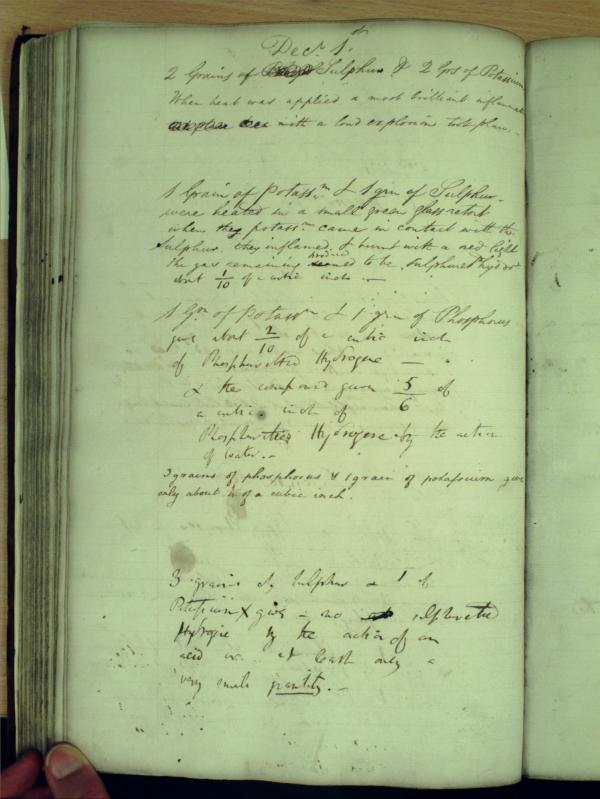 Decr. 1st
2 Grains of Sulphur & 2 Grs of Potassium
When heat was applied a most brilliant inflammat
with a loud explosion took place.
1 Grain of Potassm & 1 grn of Sulphur
were heated in a small green glass retort
when they potassm came in contact with the
Sulphur. they inflamed & burnt with a red light
the gas remaining proved to be sulphuretd hydro
about 1/10 of a cubic inch —
1 Grn of Potassm & 1 grn of Phosphorus
gave about 2/10 of a cubic inch
of Phosphuretted Hydrogene —
& the compound gave 5/6 of
a cubic inch of
Phosphuretted Hydrogene by the action
of water. —
3 grains of phosphorus & 1 grain of potassium gave
only about of a cubic inch.
3 grains of Sulphur & 1 of
Potassium X give no sulphuretted
Hydrogene by the action of an
acid or at least only a
very small quantity. —